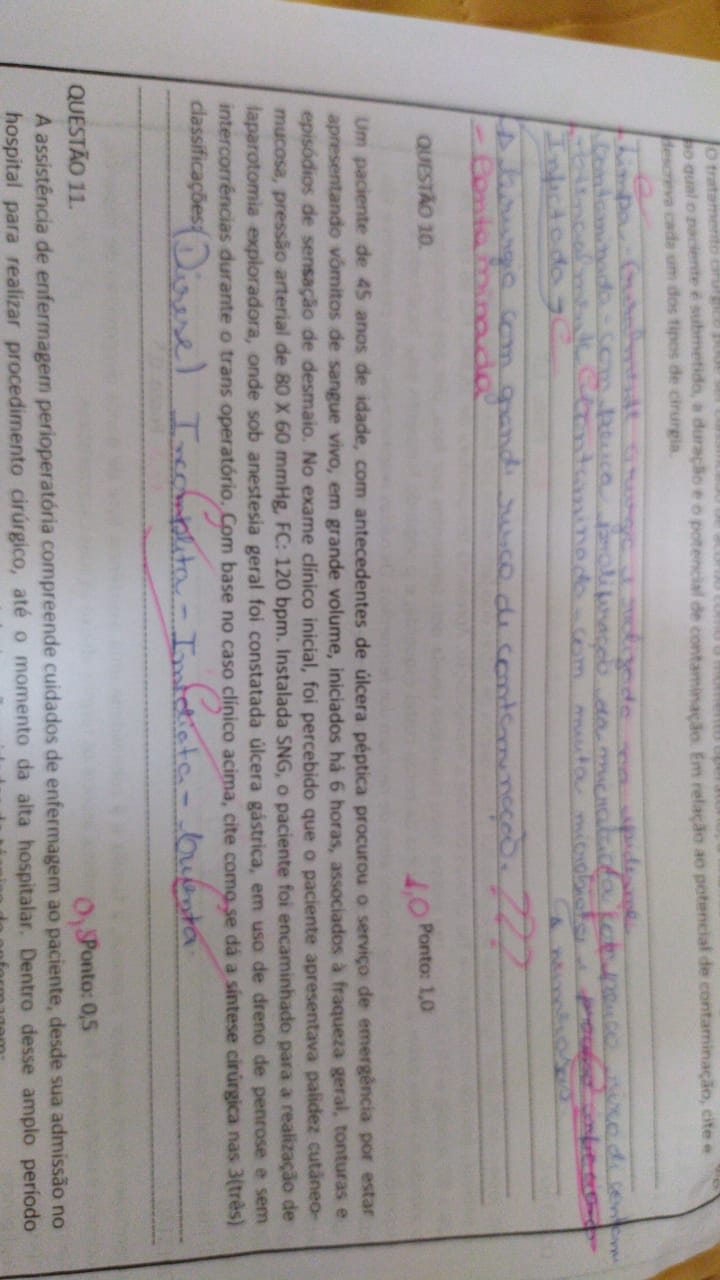 O tratamento
ao qual o paciente é submetido, a duração e o potencial de contaminação. Em relação ao potencial de contaminação, cite e
descreva cada um dos tipos de cirurgia.
- Limpa - cirurgia é realizada na epiderme
Contaminada - com pouca proliferação da microbiota, pouco risco de contam
- Potencialmente Contaminada - com muita microbiota e
numerosos
Infectada C
↳ Cirurgia com grande risco de contaminação. ???
- Contaminada
QUESTÃO 10.
1,0 Ponto: 1,0
Um paciente de 45 anos de idade, com antecedentes de úlcera péptica procurou o serviço de emergência por estar
apresentando vômitos de sangue vivo, em grande volume, iniciados há 6 horas, associados à fraqueza geral, tonturas e
episódios de sensação de desmaio. No exame clínico inicial, foi percebido que o paciente apresentava palidez cutâneo-
mucosa, pressão arterial de 80 X 60 mmHg, FC: 120 bpm. Instalada SNG, o paciente foi encaminhado para a realização de
laparotomia exploradora, onde sob anestesia geral foi constatada úlcera gástrica, em uso de dreno de penrose e sem
intercorrências durante o trans operatório. Com base no caso clínico acima, cite como se dá a síntese cirúrgica nas 3(três)
classificações: (Dierese) Incompleta - Imediata - Cruenta.
QUESTÃO 11.
0,5 Ponto: 0,5
A assistência de enfermagem perioperatória compreende cuidados de enfermagem ao paciente, desde sua admissão no
hospital para realizar procedimento cirúrgico, até o momento da alta hospitalar. Dentro desse amplo período